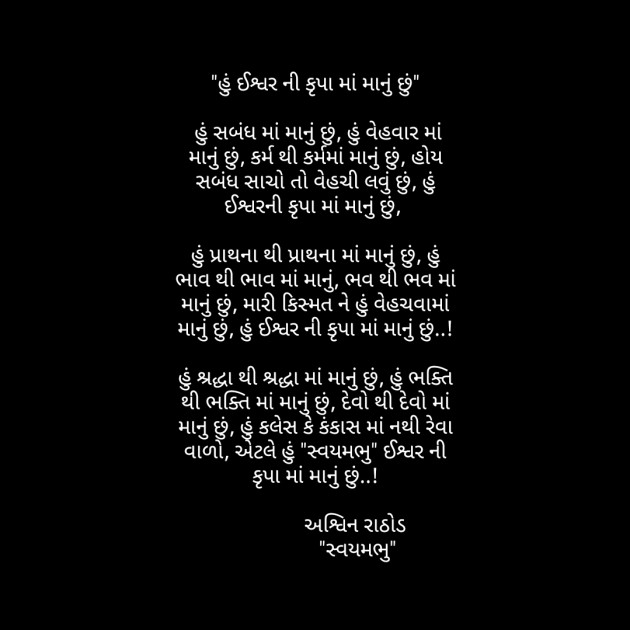 "હું ઈશ્વર ની કૃપા માં માનું છું"
હું સબંધ માં માનું છું, હું વેહવાર માં
માનું છું, કર્મ થી કર્મમાં માનું છું, હોય
સબંધ સાચો તો વેહચી લવું છું, હું
ઈશ્વરની કૃપા માં માનું છું,
હું પ્રાથના થી પ્રાથના માં માનું છું, હું
ભાવ થી ભાવ માં માનું, ભવ થી ભવ માં
માનું છું, મારી કિસ્મત ને હું વેહચવામાં
માનું છું, હું ઈશ્વર ની કૃપા માં માનું છું..!
હું શ્રદ્ધા થી શ્રદ્ધા માં માનું છું, હું ભક્તિ
થી ભક્તિ માં માનું છું, દેવો થી દેવો માં
માનું છું, હું કલેસ કે કંકાસ માં નથી રેવા
વાળો, એટલે હું "સ્વયમભુ" ઈશ્વર ની
કૃપા માં માનું છું..!
અશ્વિન રાઠોડ
"સ્વયમભુ"